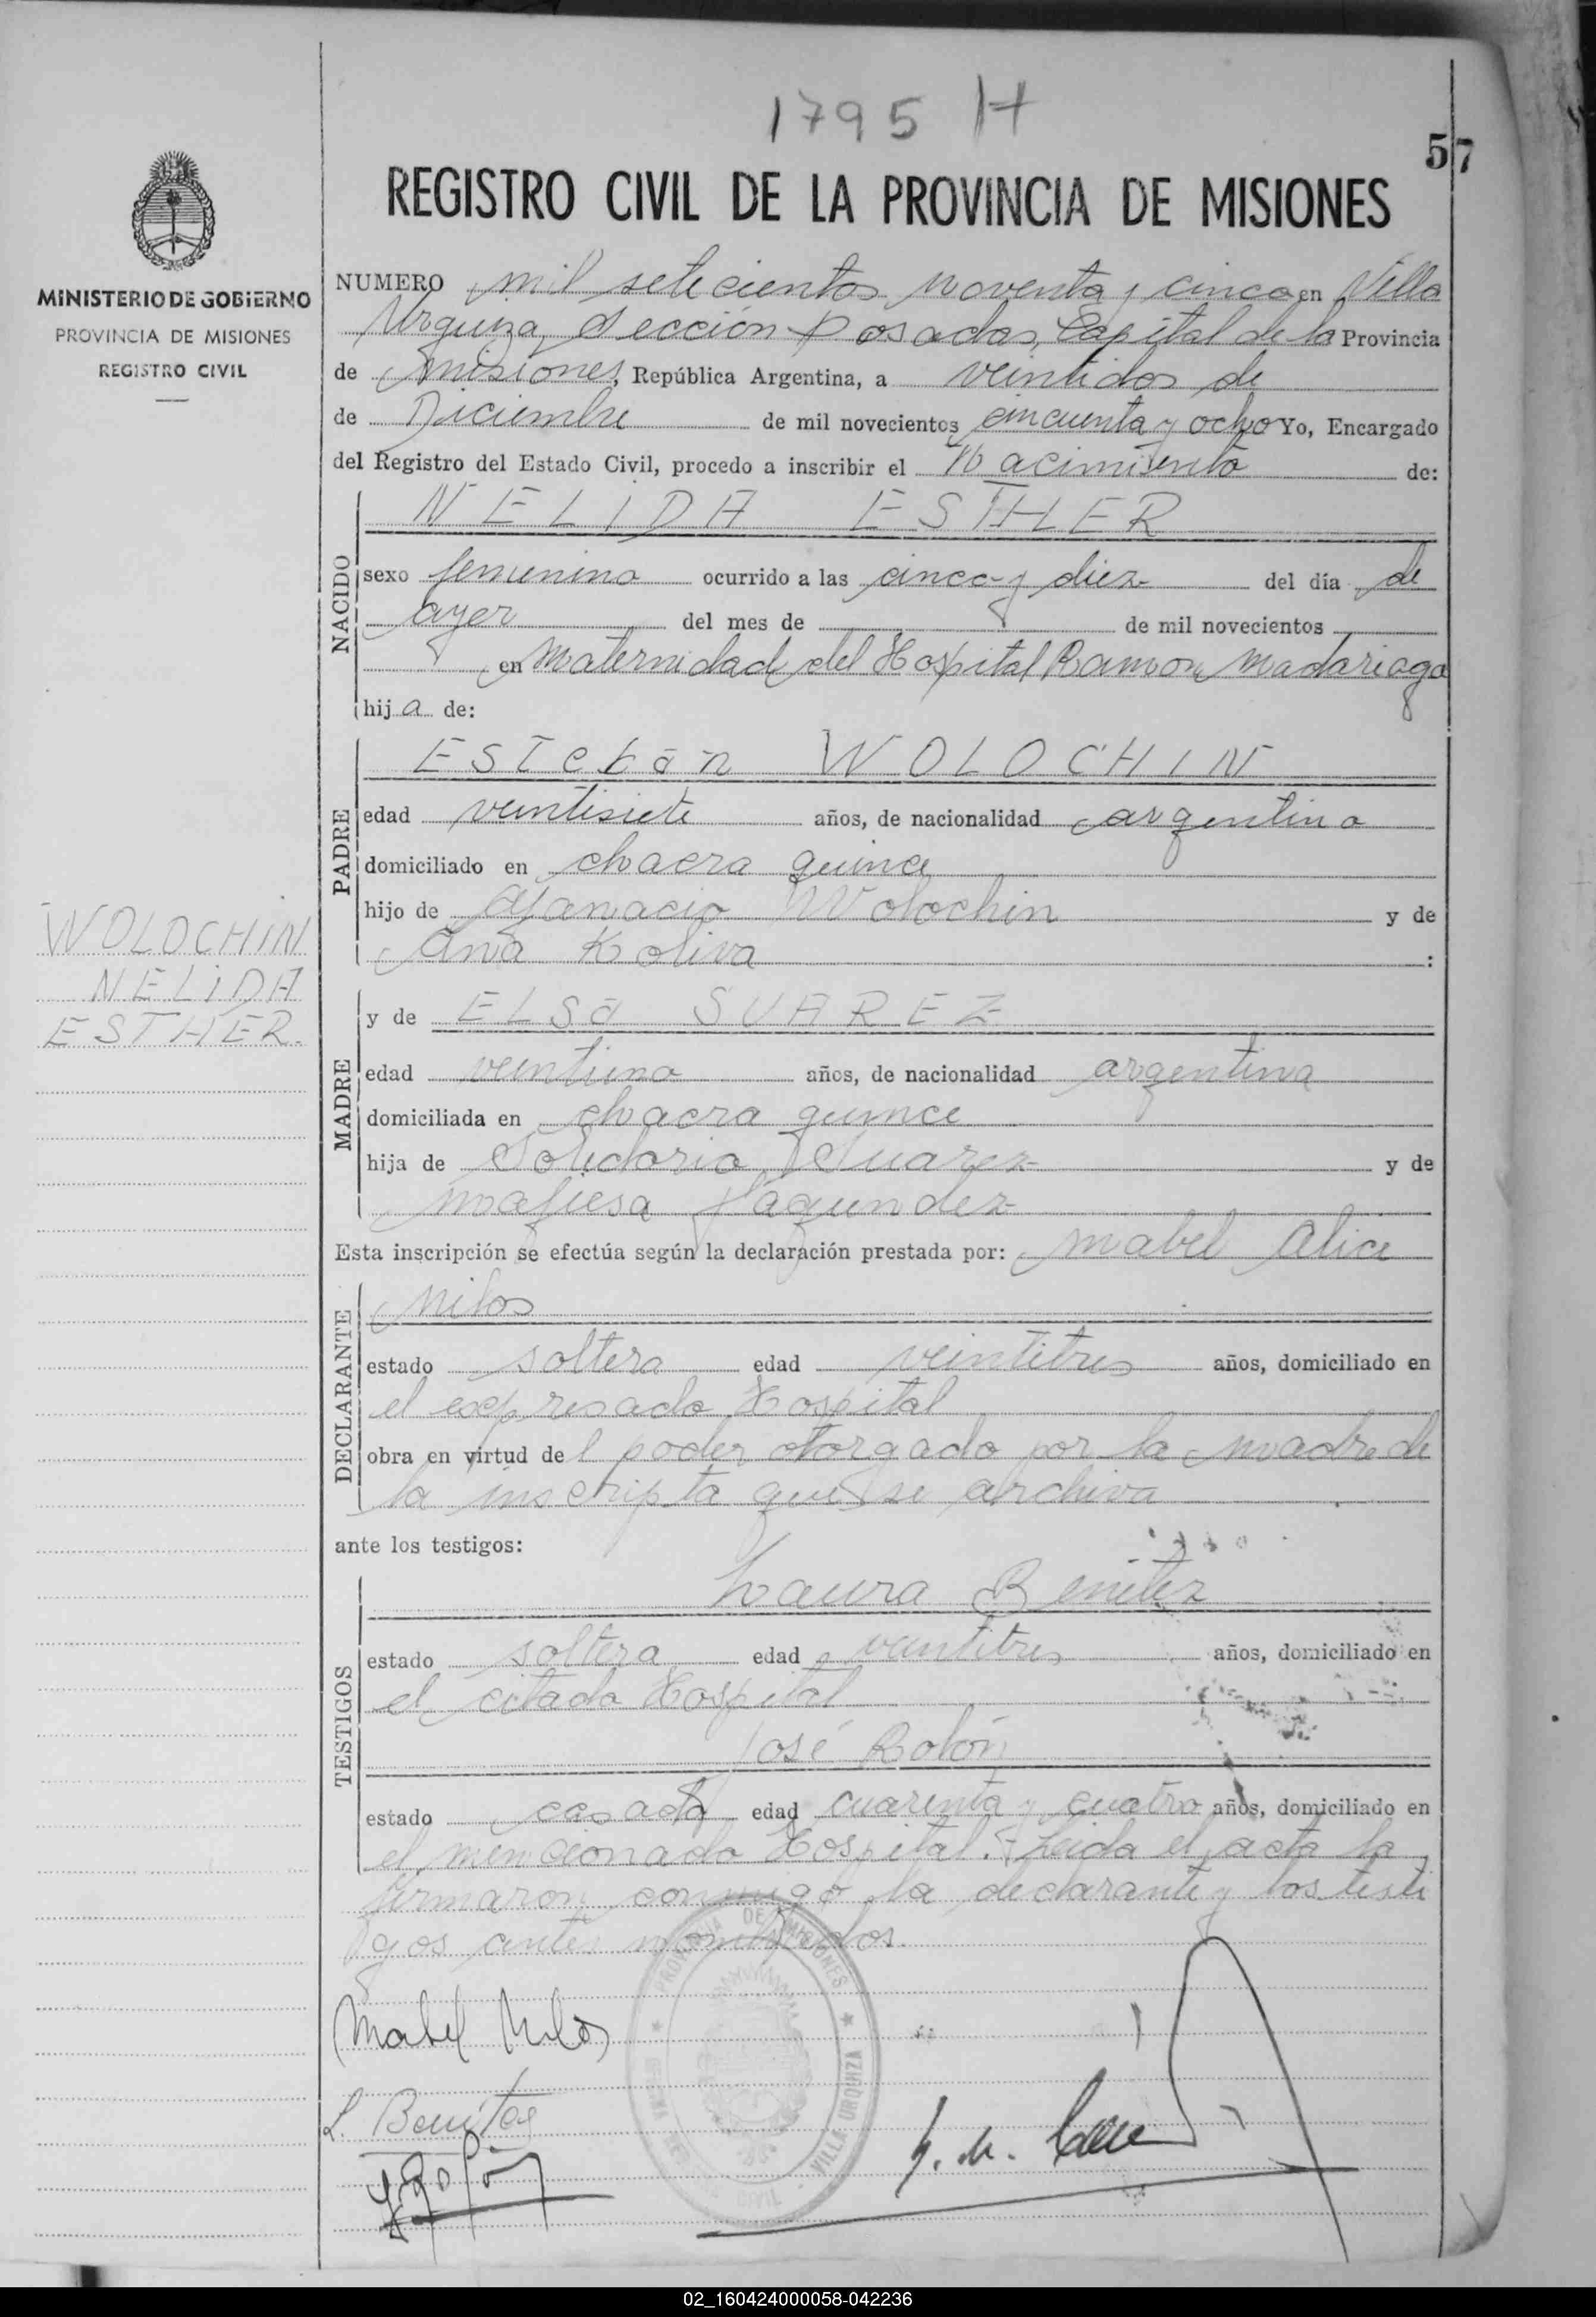 1795 H
57
REGISTRO CIVIL DE LA PROVINCIA DE MISIONES
MINISTERIO DE GOBIERNO
PROVINCIA DE MISIONES
REGISTRO CIVIL
NUMERO mil setecientos noventa y cinco en Villa
Urquiza, Sección Posadas, Capital de la Provincia
de Misiones, República Argentina, a veintidos de
de Diciembre de mil novecientos cincuenta y ocho Yo, Encargado
del Registro del Estado Civil, procedo a inscribir el Nacimiento de:
NACIDO
NELIDA ESTHER
sexo femenino ocurrido a las cinco y diez del día de
ayer del mes de de mil novecientos
en Maternidad del Hospital Ramon Madariaga
hija de:
PADRE
Esteban WOLOCHIN
edad veintisiete años, de nacionalidad argentino
domiciliado en chacra quince
hijo de Afanacio Wolochin y de
Ana Koliva :
WOLOCHIN
NELIDA
ESTHER.
MADRE
y de ELSa SUAREZ
edad veintiuno años, de nacionalidad argentina
domiciliada en chacra quince
hija de Solidario Suarez y de
Fagundez
Esta inscripción se efectúa según la declaración prestada por: Mabel Alice
DECLARANTE
Milos
estado soltera edad veintitres años, domiciliado en
el expresado Hospital
obra en virtud del poder otorgado por la madre de
la inscripta que se archiva
ante los testigos:
TESTIGOS
Laura Benitez
estado soltera edad veintitres años, domiciliado en
el citado Hospital
José Rolón
estado casado edad cuarenta y cuatro años, domiciliado en
el mencionado Hospital. Leida el acta la
firmaron conmigo la declarante y los testi
gos antes nombrados.
PROVINCIA DE MISIONES
VILLA URQUIZA
Mabel Milos
L. Benitez
J Rolón
02_160424000058-042236